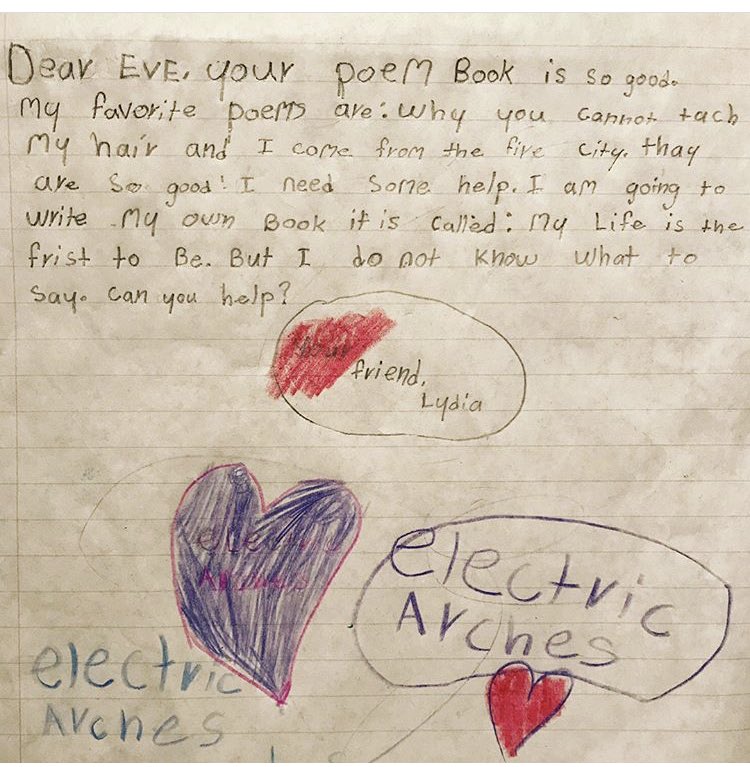 Dear EvE. your poem Book is so good.
My favorite poems are: why you cannot tach
My hair and I come from the fire city. thay
are so good! I need some help. I am going to
write My own Book it is called: My Life is the
frist to Be. But I do not know what to
say. can you help?
Your
friend,
Lydia
electric
Arches
electric
Arches
electric
Arches